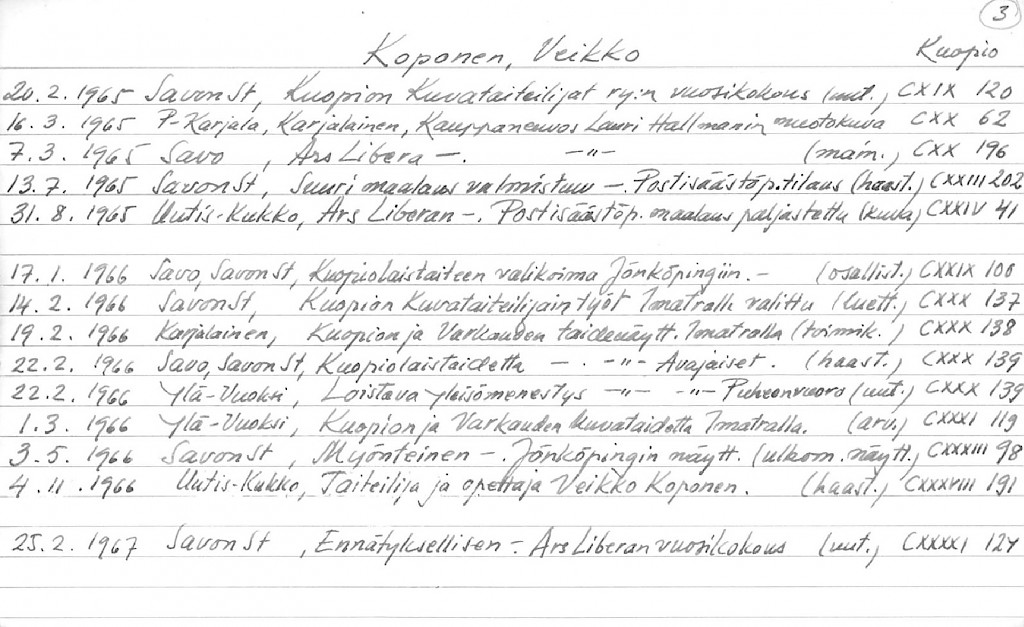 3
Koponen, Veikko Kuopio
20.2. 1965 SavonSt, Kuopion Kuvataiteilijat ry:n vuosikokous (uut.) CXIX 120
16.3. 1965 P-Karjala, Karjalainen, Kauppaneuvos Lauri Hallmanin muotokuva CXX 62
7.3. 1965 Savo , Ars Libera -. -"- (main.) CXX 196
13.7. 1965 SavonSt, Suuri maalaus valmistuu -. Postisäästöp.tilaus (haast.) CXXIII 202
31.8. 1965 Uutis-Kukko, Ars Liberan -. Postisäästöp. maalaus paljastettu (kuva) CXXIV 41
17.1. 1966 Savo, SavonSt, Kuopiolaistaiteen valikoima Jönköpingiin. - (osallist.) CXXIX 100
14.2. 1966 SavonSt, Kuopion Kuvataiteilijain työt Imatralle valittu (luett.) CXXX 137
19.2. 1966 Karjalainen, Kuopion ja Varkauden taidenäytt. Imatralla (toimik.) CXXX 138
22.2. 1966 Savo, SavonSt, Kuopiolaistaidetta - . -"- Avajaiset . (haast.) CXXX 139
22.2. 1966 Ylä-Vuoksi, Loistava yleisömenestys -"- -"- Puheenvuoro (uut.) CXXX 139
1.3. 1966 Ylä-Vuoksi, Kuopion ja Varkauden kuvataidetta Imatralla. (arv.) CXXXI 119
3.5. 1966 SavonSt , Myönteinen -. Jönköpingin näytt. (ulkom. näytt.) CXXXIII 98
4.11.1966 Uutis-Kukko, Taiteilija ja opettaja Veikko Koponen. (haast.) CXXXVIII 191
25.2. 1967 SavonSt , Ennätyksellisen -. Ars Liberan vuosikokous (uut.) CXXXXI 127